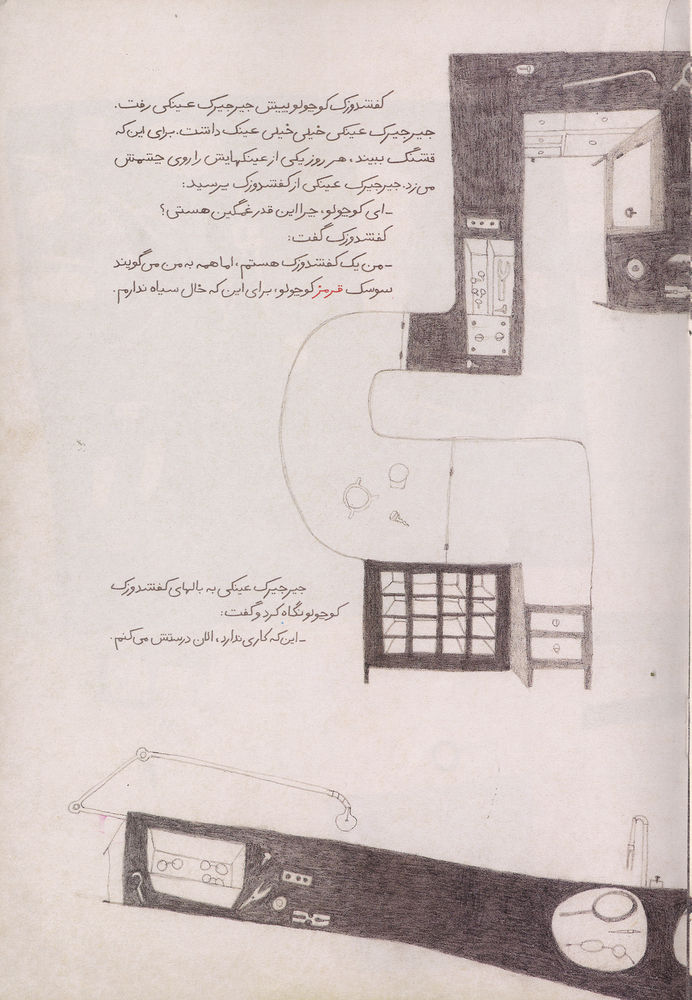 کفشدوزک کوچولو پیش جیرجیرک عینکی رفت.
جیرجیرک عینکی خیلی خیلی عینک داشت. برای این که
قشنگ ببیند، هر روز یکی از عینکهایش را روی چشمش
می‌زد. جیرجیرک عینکی از کفشدوزک پرسید:
ـ ای کوچولو، چرا این قدر غمگین هستی؟
کفشدوزک گفت:
ـ من یک کفشدوزک هستم، اما همه به من می‌گویند
سوسک قرمز کوچولو، برای این که خال سیاه ندارم.
جیرجیرک عینکی به بالهای کفشدوزک
کوچولو نگاه کرد و گفت:
ـ این که کاری ندارد، الان درستش می‌کنم.